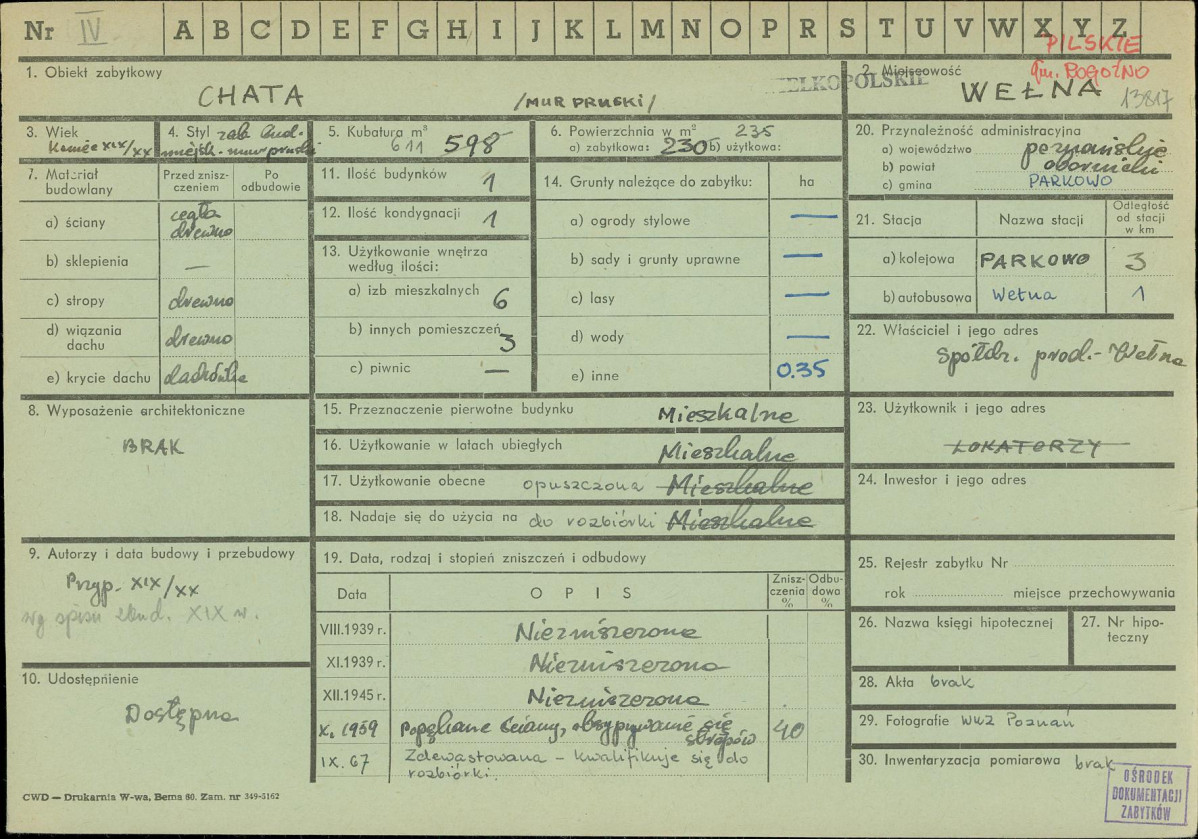 Nr IV A B C D E F G H I J K L M N O P R S T U V W X Y Z
PILSKIE
gm. ROGOŹNO
1. Obiekt zabytkowy
CHATA /MUR PRUSKI/
WIELKOPOLSKIE
2. Miejscowość
WEŁNA 13817
3. Wiek
Koniec XIX/XX
4. Styl zab. bud.
miejsk. mur pruski
5. Kubatura m³
611 598
6. Powierzchnia w m² 235
a) zabytkowa: 230 b) użytkowa:
7. Materiał budowlany
Przed zniszczeniem
Po odbudowie
a) ściany cegła drewno
b) sklepienia —
c) stropy drewno
d) wiązania dachu drewno
e) krycie dachu dachówka
11. Ilość budynków 1
12. Ilość kondygnacji 1
13. Użytkowanie wnętrza
według ilości:
a) izb mieszkalnych 6
b) innych pomieszczeń 3
c) piwnic —
14. Grunty należące do zabytku: ha
a) ogrody stylowe —
b) sady i grunty uprawne —
c) lasy —
d) wody —
e) inne 0.35
20. Przynależność administracyjna
a) województwo poznańskie
b) powiat obornicki
c) gmina PARKOWO
21. Stacja Nazwa stacji Odległość od stacji w km
a) kolejowa PARKOWO 3
b) autobusowa Wełna 1
22. Właściciel i jego adres
Spółdz. prod. - Wełna
8. Wyposażenie architektoniczne
BRAK
15. Przeznaczenie pierwotne budynku Mieszkalne
16. Użytkowanie w latach ubiegłych Mieszkalne
17. Użytkowanie obecne opuszczona Mieszkalne
18. Nadaje się do użycia na do rozbiórki Mieszkalne
23. Użytkownik i jego adres
LOKATORZY
24. Inwestor i jego adres
9. Autorzy i data budowy i przebudowy
Przyp. XIX/XX
wg spisu bud. XIX w.
10. Udostępnienie
Dostępna
19. Data, rodzaj i stopień zniszczeń i odbudowy
Data OPIS Zniszczenia % Odbudowa %
VIII.1939 r. Niezniszczona
XI.1939 r. Niezniszczona
XII.1945 r. Niezniszczona
X. 1959 Popękane ściany, obsypywanie się
stropów 40
IX. 67 Zdewastowana – kwalifikuje się do
rozbiórki.
25. Rejestr zabytku Nr
rok miejsce przechowywania
26. Nazwa księgi hipotecznej
27. Nr hipoteczny
28. Akta brak
29. Fotografie WKZ Poznań
30. Inwentaryzacja pomiarowa brak
OŚRODEK
DOKUMENTACJI
ZABYTKÓW
CWD — Drukarnia W-wa, Bema 60. Zam. nr 349-5162